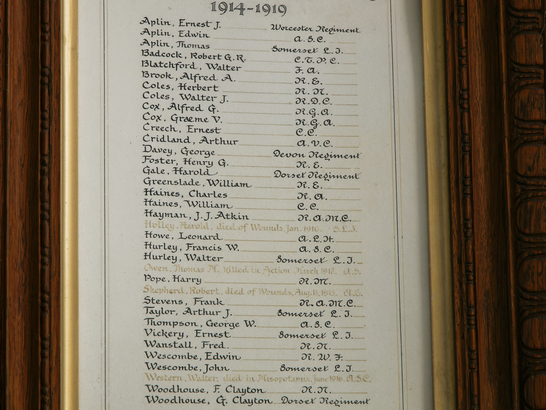 1914-1919
Aplin, Ernest J. Worcester Regiment
Aplin, Edwin A.S.C.
Aplin, Thomas Somerset L.I.
Badcock, Robert G.R. C.T.P.C.
Blatchford, Walter F.A.
Brook, Alfred A. R.E.
Coles, Herbert R.N.
Coles, Walter J. R.D.C.
Cox, Alfred G. R.G.A.
Cox, Graeme V. R.G.A.
Creech, Ernest C.C.
Cridland, Arthur A.V.C.
Davey, George Devon Regiment
Foster, Henry G. R.E.
Gale, Harold Dorset Regiment
Greenslade, William R.E.
Haines, Charles R.A.
Haines, William C.C.
Hayman, J.J. Atkin R.A.M.C.
Holley, Harold, died of Wounds, Jan. 1916. S.L.I.
Howe, Leonard A.I.F.
Hurley, Francis W. A.S.C.
Hurley, Walter Somerset L.I.
Owen, Thomas M. killed in Action March 1918.
Pope, Harry R.M.
Shepherd, Robert, died of Wounds, Aug.
Stevens, Frank R.A.M.C.
Taylor, Arthur J. Somerset L.I.
Thompson, George W. A.S.C.
Vickery, Ernest Somerset L.I.
Wanstall, Fred. R.N.
Wescombe, Edwin R.W.F.
Wescombe, John Somerset L.I.
Western, Walter, died in Mesopotamia, June 1916. A.S.C.
Woodhouse, F. Clayton R.N.
Woodhouse, G. Clayton Dorset Regiment